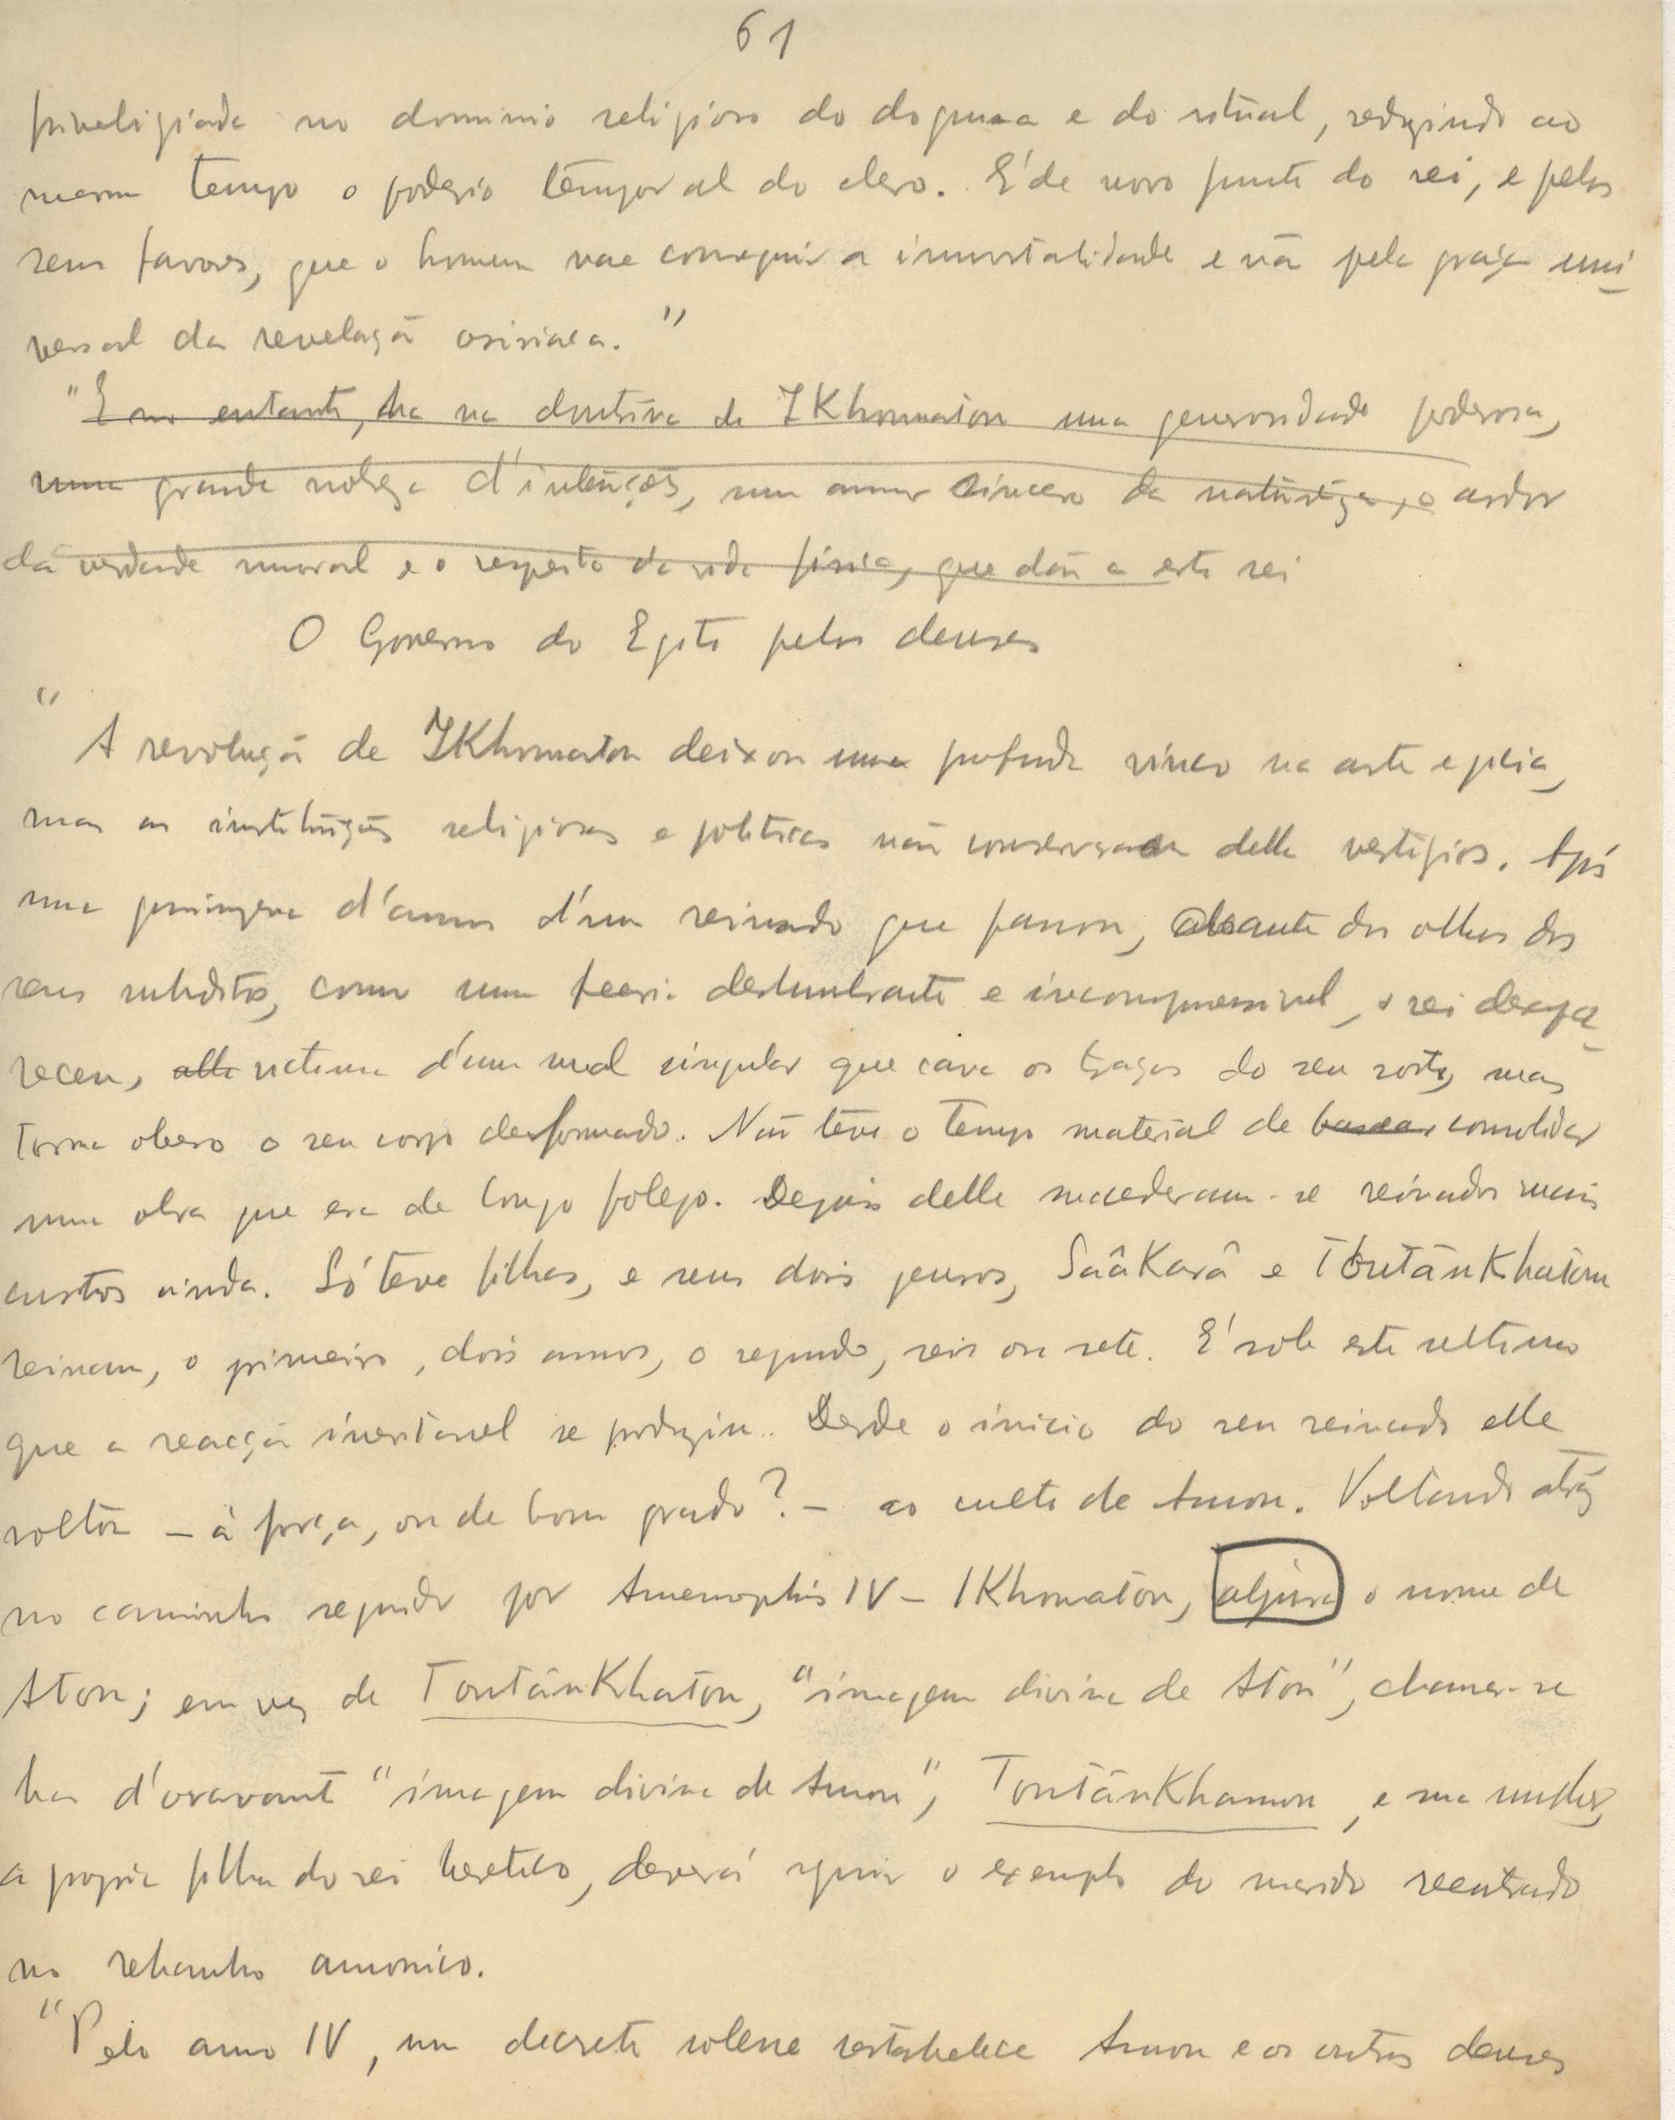 61
priveligiada no dominio religioso do dogma e do ritual, reduzindo ao
mesmo tempo o poderio temporal do clero. E' de novo junto do rei, e pelos
seus favores, que o homem vae conseguir a immortalidade e não pela graça uni
versal da revelação osiriaca."
"E no entanto, ha na doutrina de IKhounaton uma generosidade poderosa,
uma grande nobreza d'intenções, um amor sincero da natureza, o ardor
da verdade moral e o respeito da vida fisica, que dão a este rei
O Governo do Egito pelos deuses
"A revolução de IKhounaton deixou um profundo vinco na arte egipcia,
mas as instituições religiosas e politicas não conservaram delle vestigios. Após
uma quinzena d'annos d'um reinado que passou, deante dos olhos dos
seus subditos, como uma feeria deslumbrante e incompressivel, o rei desapa
receu, victima d'um mal singular que cava os traços do seu rosto, mas
torna obeso o seu corpo desformado. Não teve o tempo material de buscar consolidar
uma obra que era de longo folego. Depois delle succederam-se reinados mais
curtos ainda. Só teve filhas, e seus dois genros, SaâKarâ e ToutânKhaton
reinam, o primeiro, dois annos, o segundo, seis ou sete. E' sob este ultimo
que a reacção inevitavel se produziu. Desde o inicio do seu reinado elle
voltou – à força, ou de bom grado? – ao culto de Amon. Voltando atrás
no caminho seguido por Amenophis IV – IKhounaton, abjura o nome de
Aton; em vez de ToutânKhaton, "imagem divina de Aton", chamar-se
ha d'oravante "imagem divina de Amon", ToutânKhamon, e sua mulher,
a propria filha do rei heretico, deverá seguir o exemplo do marido reentrado
no rebanho amonico.
"Pelo anno IV, um decreto solene restabelece Amon e os outros deuses